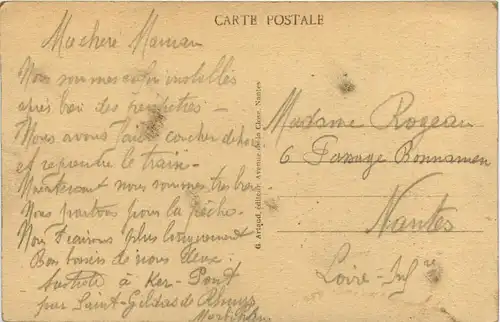 CARTE POSTALE
Ma chère Maman
Nous sommes enfin installés
après bien des péripéties -
Nous avons coucher dehors
et reprendre le train -
Maintenant nous sommes très bien -
Nous partons pour la pêche.
Nous écrirons plus longuement
Bons baisers de nous deux.
à Ker-Pont
par Saint-Gildas de Rhuys
Morbihan
G. Artaud, éditeur, Avenue de la Close, Nantes
Madame Rogeau
6 Passage Bonnamen
Nantes
Loire-Infre